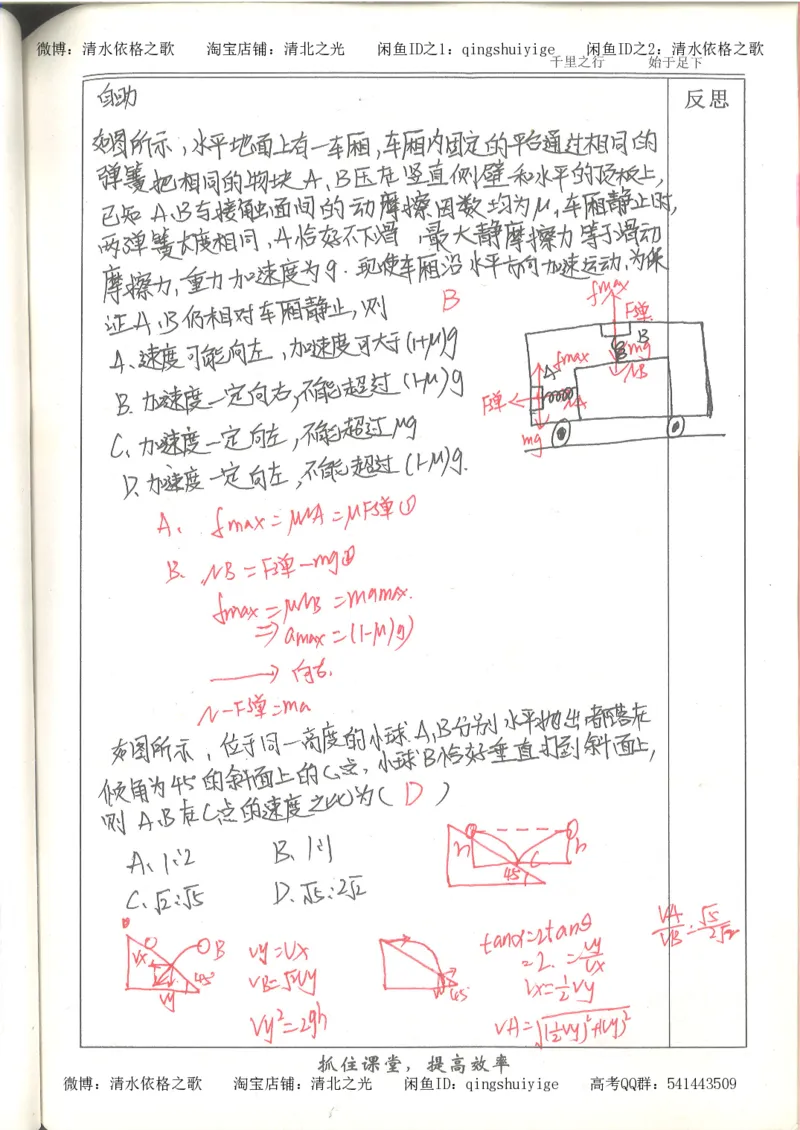 微博：清水依格之歌 淘宝店铺：清北之光 闲鱼ID之1：qingshuiyige 闲鱼ID之2：清水依格之歌
千里之行 始于足下
自助
反思
如图所示，水平地面上有一车厢，车厢内固定的平台通过相同的
弹簧把相同的物块A、B压在竖直侧壁和水平的顶板上，
已知A、B与接触面间的动摩擦因数均为μ，车厢静止时，
两弹簧长度相同，A恰好不下滑，最大静摩擦力等于滑动
摩擦力，重力加速度为g．现使车厢沿水平方向加速运动，为保
证A、B仍相对车厢静止，则
B
A、速度可能向左，加速度可大于(1+μ)g
B、加速度一定向右，不能超过(1-μ)g
C、加速度一定向左，不能超过μg
D、加速度一定向左，不能超过(1-μ)g.
fmax
F弹
B
B
mg
NB
A
fmax
F弹
NA
mg
A、 fmax=μNA=μF弹①
B. NB=F弹-mg①
fmax=μNB=mamax.
⇒amax=(1-μ)g)
→ 向右.
N-F弹=ma
如图所示，位于同一高度的小球A、B分别水平抛出都落在
倾角为45°的斜面上的C点，小球B恰好垂直打到斜面上，
则A、B在C点的速度之比为( D )
A、1:2 B、1:1
C、√2:√5 D、√5:2√2
h C h
45°
B
Vx
Vy
45°
Vy=Vx
VB=√2Vy
Vy²=2gh
45°
tanα=2tanθ
=2.=Vy/Vx
Vx=½Vy
VA=√(½Vy)²+(Vy)²
VA/VB=√5/2√2
抓住课堂，提高效率
微博：清水依格之歌 淘宝店铺：清北之光 闲鱼ID：qingshuiyige 高考QQ群：541443509